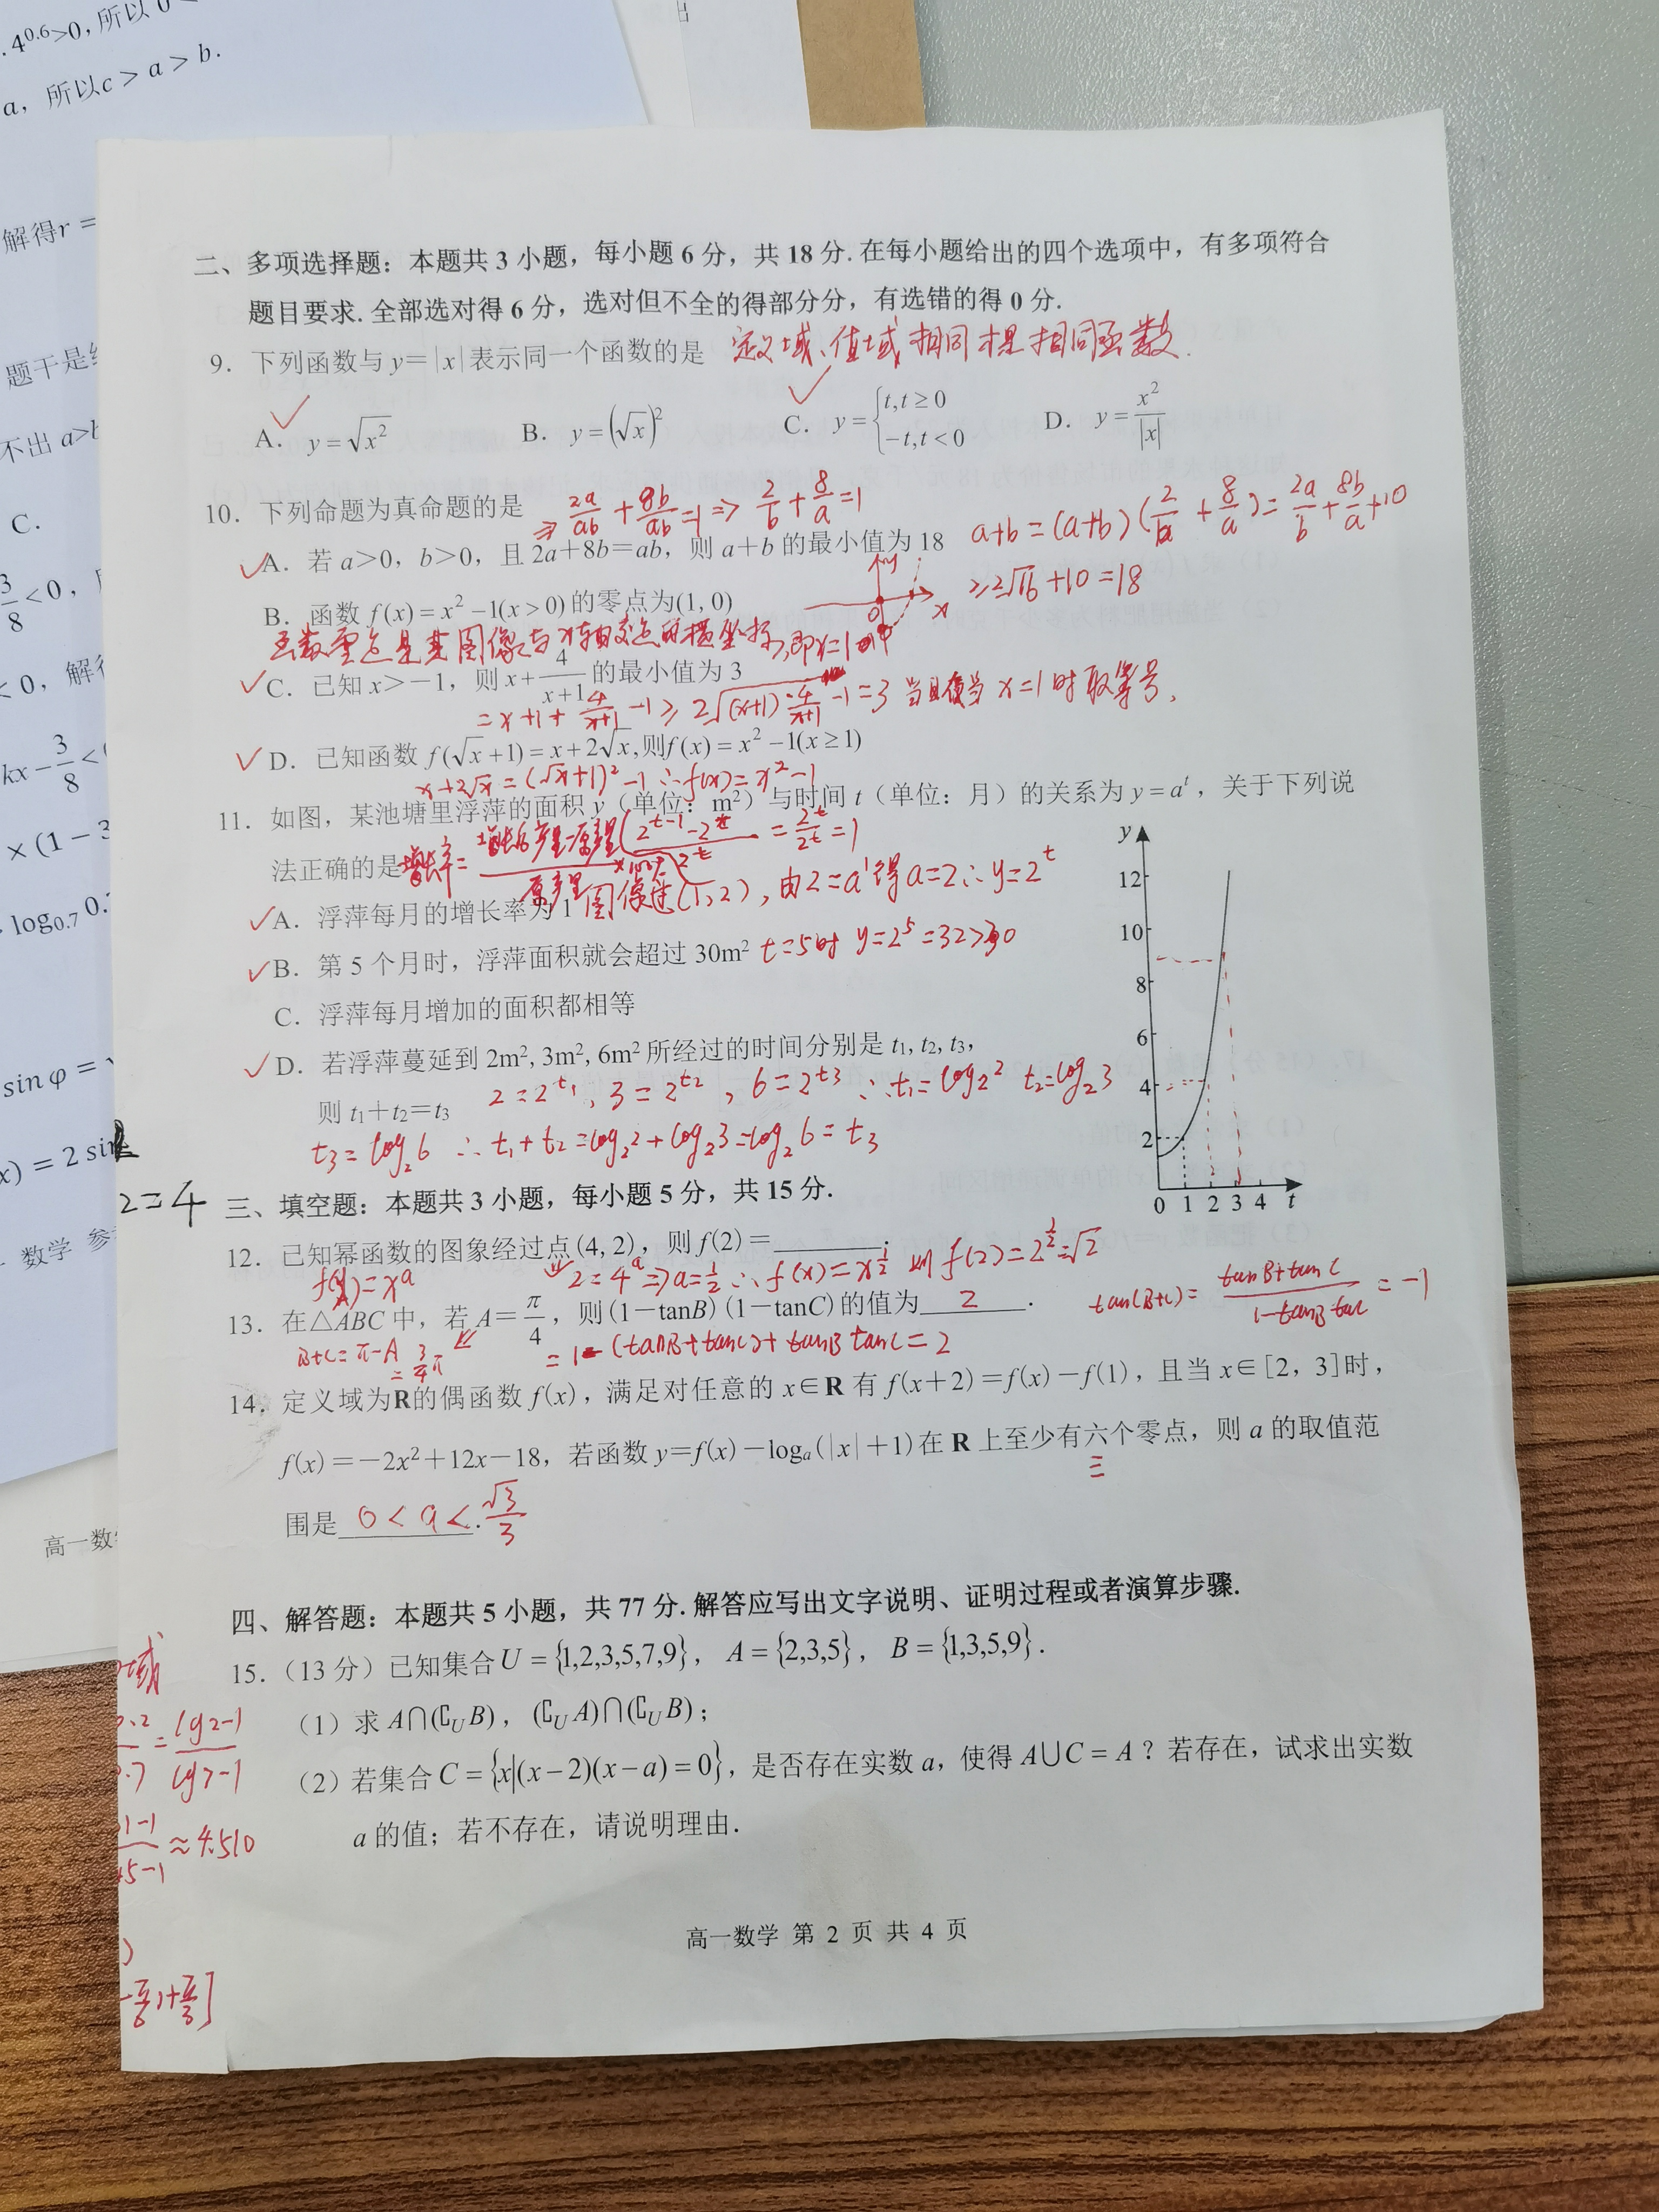 .4^0.6>0,所以 0
a，所以c > a > b.
解得r =
题干是
不出 a>b
C.
3/8 <0，
< 0，解得
kx - 3/8 <
× (1 - 3
log₀.₇ 0.
sin φ =
x) = 2 sin
2=4
数学 参
高一数
二、多项选择题：本题共 3 小题，每小题 6 分，共 18 分. 在每小题给出的四个选项中，有多项符合
题目要求. 全部选对得 6 分，选对但不全的得部分分，有选错的得 0 分.
9．下列函数与 y＝|x| 表示同一个函数的是 定义域、值域相同才是相同函数.
A．y=√(x²) B．y=(√x)² C．y={t,t≥0 -t,t<0 D．y=x²/|x|
10．下列命题为真命题的是 ⇒ 2a/ab + 8b/ab =1 ⇒ 2/b + 8/a =1
a+b = (a+b)(2/b + 8/a) = 2a/b + 8b/a +10
A．若 a>0，b>0，且 2a+8b＝ab，则 a+b 的最小值为 18
≥2√16 +10 =18
B．函数 f(x)=x²-1(x>0)的零点为(1, 0)
函数零点是其图像与x轴交点的横坐标,即x=1
C．已知 x>－1，则 x+4/(x+1) 的最小值为 3
= x+1+ 4/(x+1) -1 ≥ 2√((x+1)·4/(x+1)) -1 =3 当且仅当 x=1时取等号,
D．已知函数 f(√x+1)=x+2√x,则f(x)=x²-1(x≥1)
x+2√x = (√x+1)²-1 ∴f(x)=x²-1
11．如图，某池塘里浮萍的面积 y（单位：m²）与时间 t（单位：月）的关系为 y=aᵗ，关于下列说
法正确的是
A．浮萍每月的增长率为 1 图像过(1,2)，由2=a¹得a=2∴y=2ᵗ
B．第 5 个月时，浮萍面积就会超过 30m² t=5时 y=2⁵=32>30
C．浮萍每月增加的面积都相等
D．若浮萍蔓延到 2m², 3m², 6m² 所经过的时间分别是 t₁, t₂, t₃，
2=2^t₁, 3=2^t₂, 6=2^t₃ ∴t₁=log₂2 t₂=log₂3
则 t₁＋t₂＝t₃
t₃=log₂6 ∴t₁+t₂=log₂2+log₂3=log₂6=t₃
y
12
10
8
6
4
2
0 1 2 3 4 t
三、填空题：本题共 3 小题，每小题 5 分，共 15 分.
12．已知幂函数的图象经过点(4, 2)，则 f(2)＝________.
f(x)=xᵃ 2=4ᵃ⇒a=1/2 ∴f(x)=x^1/2 则 f(2)=2^1/2=√2
13．在△ABC 中，若 A＝π/4，则(1－tanB)(1－tanC)的值为 2 .
tan(B+C)= (tanB+tanC)/(1-tanB tanC) = -1
B+C=π-A = 3/4π
=1-(tanB+tanC)+tanB tanC=2
14．定义域为R的偶函数 f(x)，满足对任意的 x∈R 有 f(x+2)＝f(x)－f(1)，且当 x∈[2，3]时，
f(x)＝－2x²+12x－18，若函数 y＝f(x)－logₐ(|x|+1)在 R 上至少有六个零点，则 a 的取值范
三
围是 0<a<√3/3 .
四、解答题：本题共 5 小题，共 77 分. 解答应写出文字说明、证明过程或者演算步骤.
15．（13 分）已知集合U = {1,2,3,5,7,9}，A = {2,3,5}，B = {1,3,5,9}.
（1）求 A∩(∁ᵤB)，(∁ᵤA)∩(∁ᵤB)；
（2）若集合 C = {x|(x-2)(x-a)=0}，是否存在实数 a，使得 A∪C = A？若存在，试求出实数
a 的值；若不存在，请说明理由.
域
= (lg2-1)/(lg7-1)
≈4.510
高一数学 第 2 页 共 4 页